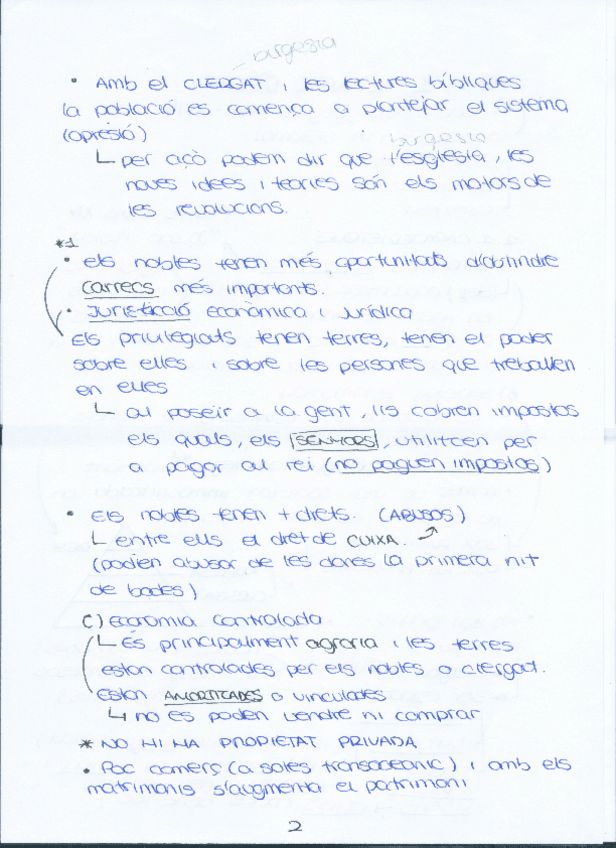 burgesia
• Amb el CLERGAT i les lectures bíbliques
la població es comença a plantejar el sistema
(opresió)
burgesia
└ per açò podem dir que l'església, les
noves idees i teories són els motors de
les revolucions.
*1
• els nobles tenen més oportunitats d'obtindre
carrecs més importants.
• Juristicció econòmica i jurídica
Els privilegiats tenen terres, tenen el poder
sobre elles i sobre les persones que treballen
en elles
└ al posseir a la gent, lis cobren impostos
els quals, els SENYORS, utilitcen per
a paigar al rei (no paguen impostos)
• Els nobles tenen + drets. (ABUSOS)
└ entre ells el dret de CUIXA.
(podien abusar de les dones la primera nit
de bodes)
C) Economia controlada
└ És principalment agraria i les terres
estan controlades per els nobles o clergat.
Estan AMORTITCADES o vinculades
└ no es poden vendre ni comprar
* NO HI HA PROPIETAT PRIVADA
• Poc comerç (a soles transoceanic) i amb els
matrimonis s'augmenta el patrimoni
2